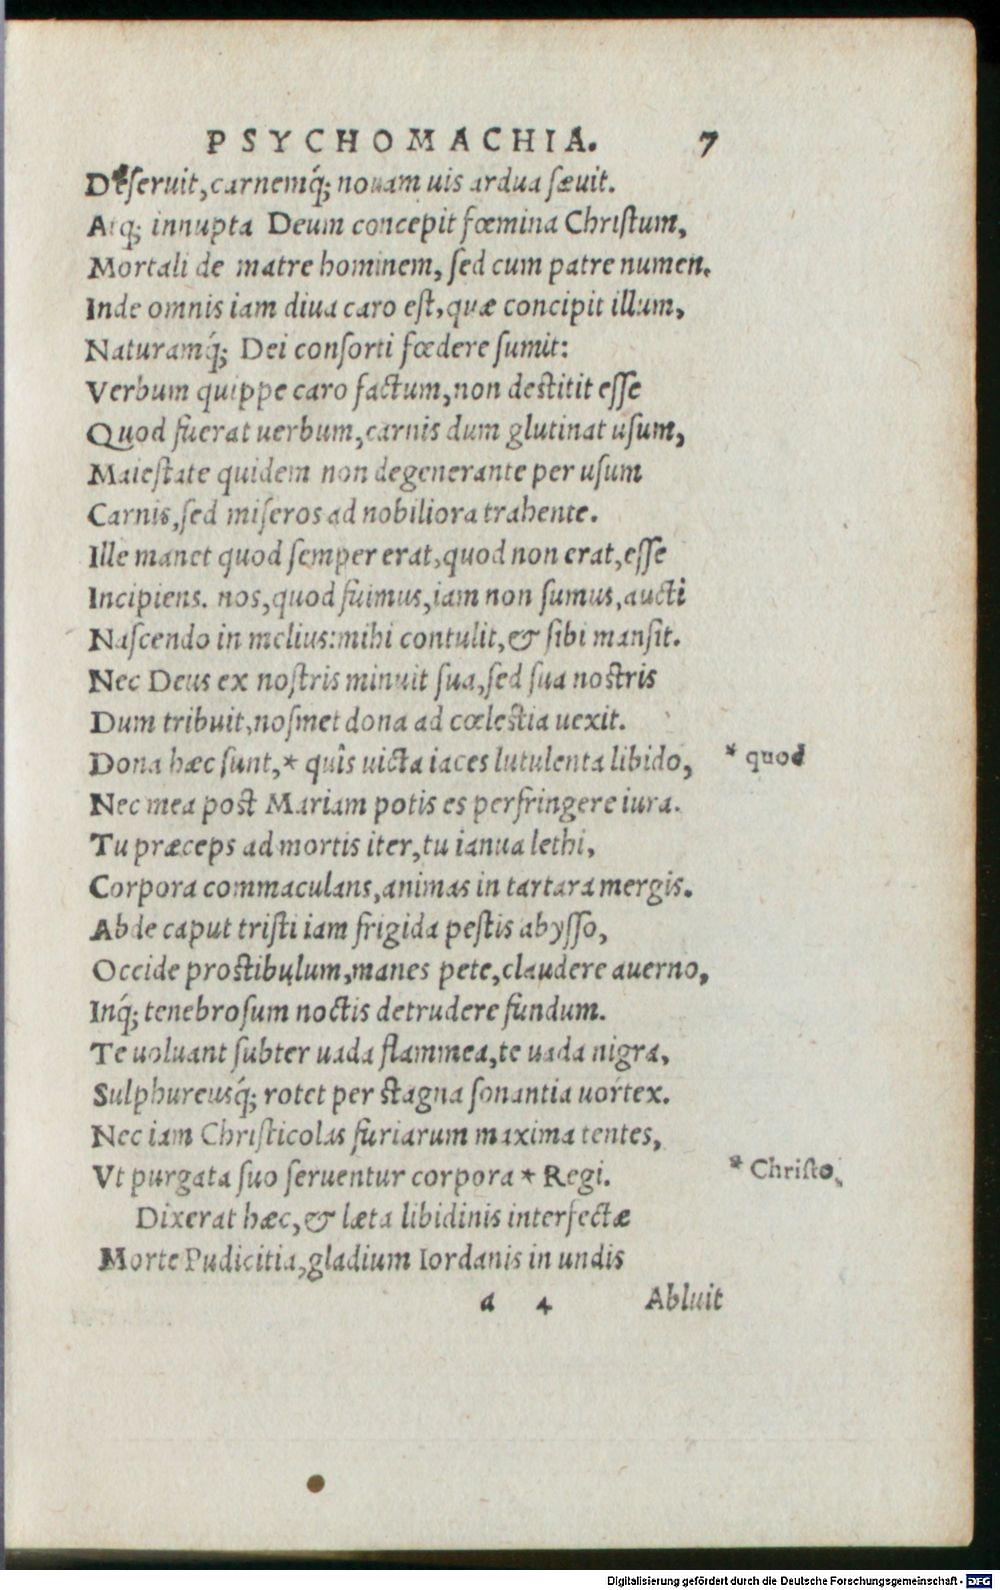 PSYCHOMACHIA. 7
Deſeruit, carnemq́; nouam uis ardua ſæuit.
Atq; innupta Deum concepit fœmina Chriſtum,
Mortali de matre hominem, ſed cum patre numen.
Inde omnis iam diua caro eſt, quæ concipit illum,
Naturamq́; Dei conſorti fœdere ſumit:
Verbum quippe caro factum, non deſtitit eſſe
Quod fuerat uerbum, carnis dum glutinat uſum,
Maieſtate quidem non degenerante per uſum
Carnis, ſed miſeros ad nobiliora trahente.
Ille manet quod ſemper erat, quod non erat, eſſe
Incipiens. nos, quod fuimus, iam non ſumus, aucti
Naſcendo in melius: mihi contulit, & ſibi manſit.
Nec Deus ex noſtris minuit ſua, ſed ſua noſtris
Dum tribuit, noſmet dona ad cœleſtia uexit.
Dona hæc ſunt, * quîs uicta iaces lutulenta libido, * quod
Nec mea poſt Mariam potis es perfringere iura.
Tu præceps ad mortis iter, tu ianua lethi,
Corpora commaculans, animas in tartara mergis.
Abde caput triſti iam frigida peſtis abyſſo,
Occide proſtibulum, manes pete, claudere auerno,
Inq́; tenebroſum noctis detrudere fundum.
Te uoluant ſubter uada flammea, te uada nigra,
Sulphureusq́; rotet per ſtagna ſonantia uortex.
Nec iam Chriſticolas furiarum maxima tentes,
Vt purgata ſuo ſeruentur corpora * Regi. * Chriſto.
Dixerat hæc, & læta libidinis interfectæ
Morte Pudicitia, gladium Iordanis in undis
a 4 Abluit
Digitalisierung gefördert durch die Deutsche Forschungsgemeinschaft - DFG